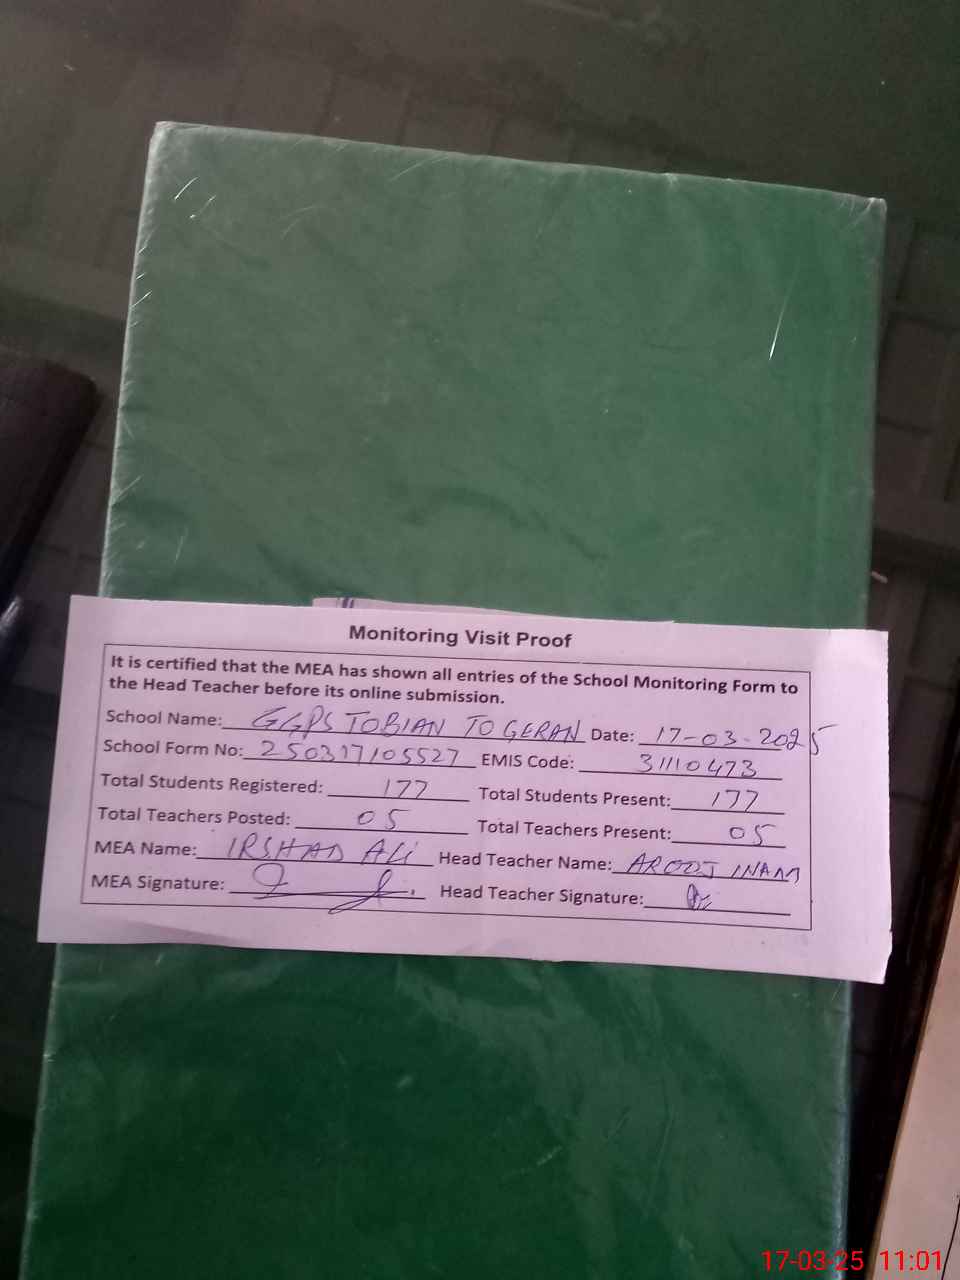 Monitoring Visit Proof
It is certified that the MEA has shown all entries of the School Monitoring Form to
the Head Teacher before its online submission.
School Name: GGPS TOBIAN TOGERAN Date: 17-03-2025
School Form No: 250317105527 EMIS Code: 31110473
Total Students Registered: 177 Total Students Present: 177
Total Teachers Posted: 05 Total Teachers Present: 05
MEA Name: IRSHAD ALi Head Teacher Name: AROOJ INAM
MEA Signature: Head Teacher Signature:
17-03-25 11:01